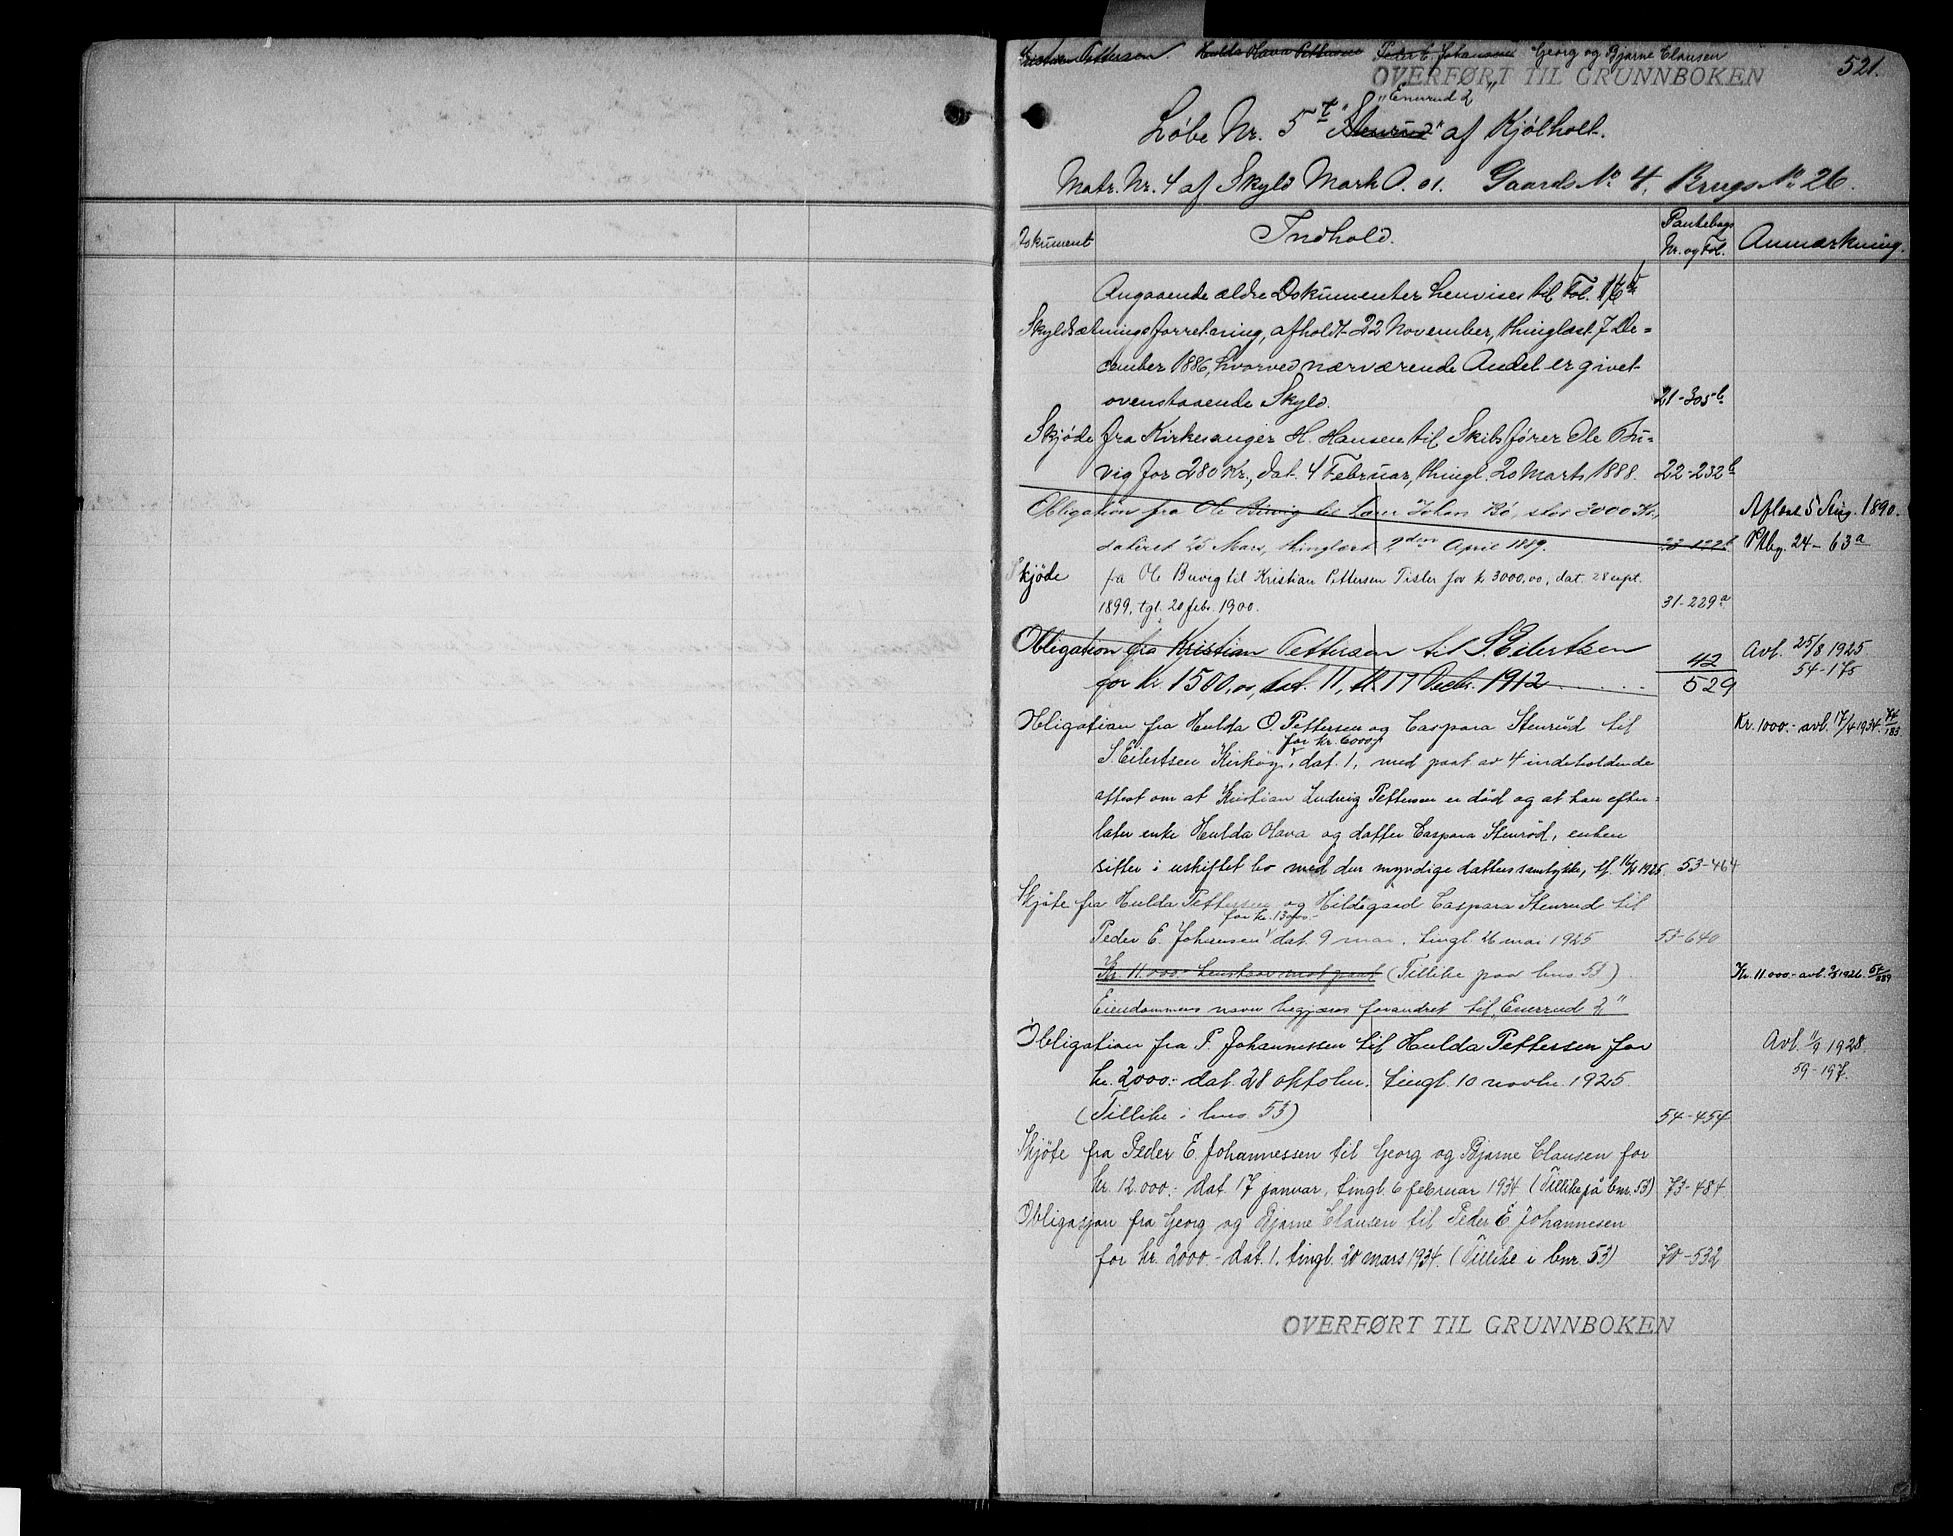 Kristian Pettersen. Hulda Olava Pettersen Peder E. Johansen Georg og Bjarne Clausen
OVERFØRT TIL GRUNNBOKEN 521.
"Enerud 2"
Løbe Nr. 5 t "Stenrud" af Kjølholt.
Matr. Nr. 4 af Skyld Mark 0.01. Gaards No 4, Brugs No 26.
Dokument Indhold. Pantebogs Nr. og Fol. Anmærkning.
Angaaende ældre Dokumenter henvises til Fol. 16
Skyldsætningsforretning, afholdt 22 November, thinglæst 7 De=
cember 1886, hvorved nærværende Andel er givet
ovenstaaende Skyld. 21-305b
Skjøde fra Kirkesanger H. Hansen til Skibsfører Ole Bu=
vig for 280 Kr., dat. 4 Februar, thingl. 20 Marts 1888. 22-232b
Obligation fra Ole Buvig til Johan Bø stor 3000 Kr., Aflæst 5 Aug. 1890.
dateret 25 Mars, thinglæst 2den April 1889. Ptbg. 24-63a
Skjøde fra Ole Buvig til Kristian Pettersen Tisler for k 3000,00, dat. 28 sept.
1899, tgl. 20 febr. 1900. 31-229a
Obligation fra Kristian Pettersen til S. Eilertsen Avl. 25/8 1925
for kr. 1500,00, dat. 11, tl. 17 Decbr. 1912 42/529 54-175
Obligation fra Hulda O. Pettersen og Caspara Stenrud til Kr. 1000.- avl. 17/4 1934. 74/183
for kr. 6000,-
S. Eilertsen Kirkøy, dat. 1, med paat. av 4 indeholdende
attest om at Kristian Ludvig Pettersen er død og at han efter=
later enke Hulda Olava og datter Caspara Stenrød, enken
sitter i uskiftet bo med den myndige datters samtykke, tl. 16/4 1925. 53-464
Skjøte fra Hulda Pettersen og Hildegard Caspara Stenrud til
for kr. 13000.-
Peder E. Johansen dat. 9 mai, tingl. 26 mai 1925 53-640
Kr. 11.000.- henstaar mot pant (Tillike paa bnr. 53) Kr. 11.000.- avl. 1926.
Eiendommens navn begjæres forandret til "Enerud 2"
Obligation fra P. Johannessen til Hulda Pettersen for Avl. 1/9 1928.
kr. 2000.- dat. 28 oktober. tingl. 10 novbr. 1925. 59-197.
(Tillike i bnr. 53) 54-454
Skjøte fra Peder E. Johannessen til Georg og Bjarne Clausen for
kr. 12.000.- dat. 17 januar, tingl. 6 februar 1934 (Tillike på bnr. 53) 73-484
Obligasjon fra Georg og Bjarne Clausen til Peder E Johannesen
for kr. 2000.- dat. 1. tingl. 20 mars 1934. (Tillike i bnr. 53) 70-532
OVERFØRT TIL GRUNNBOKEN